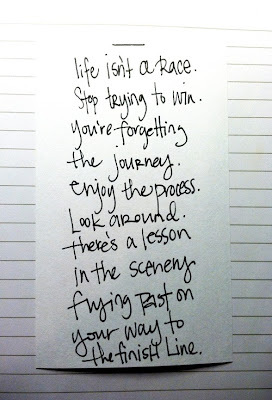 life isn't a Race.
Stop trying to win.
you're forgetting
the journey.
enjoy the process.
Look around.
there's a lesson
in the scenery
flying Past on
your way to
the finish Line.